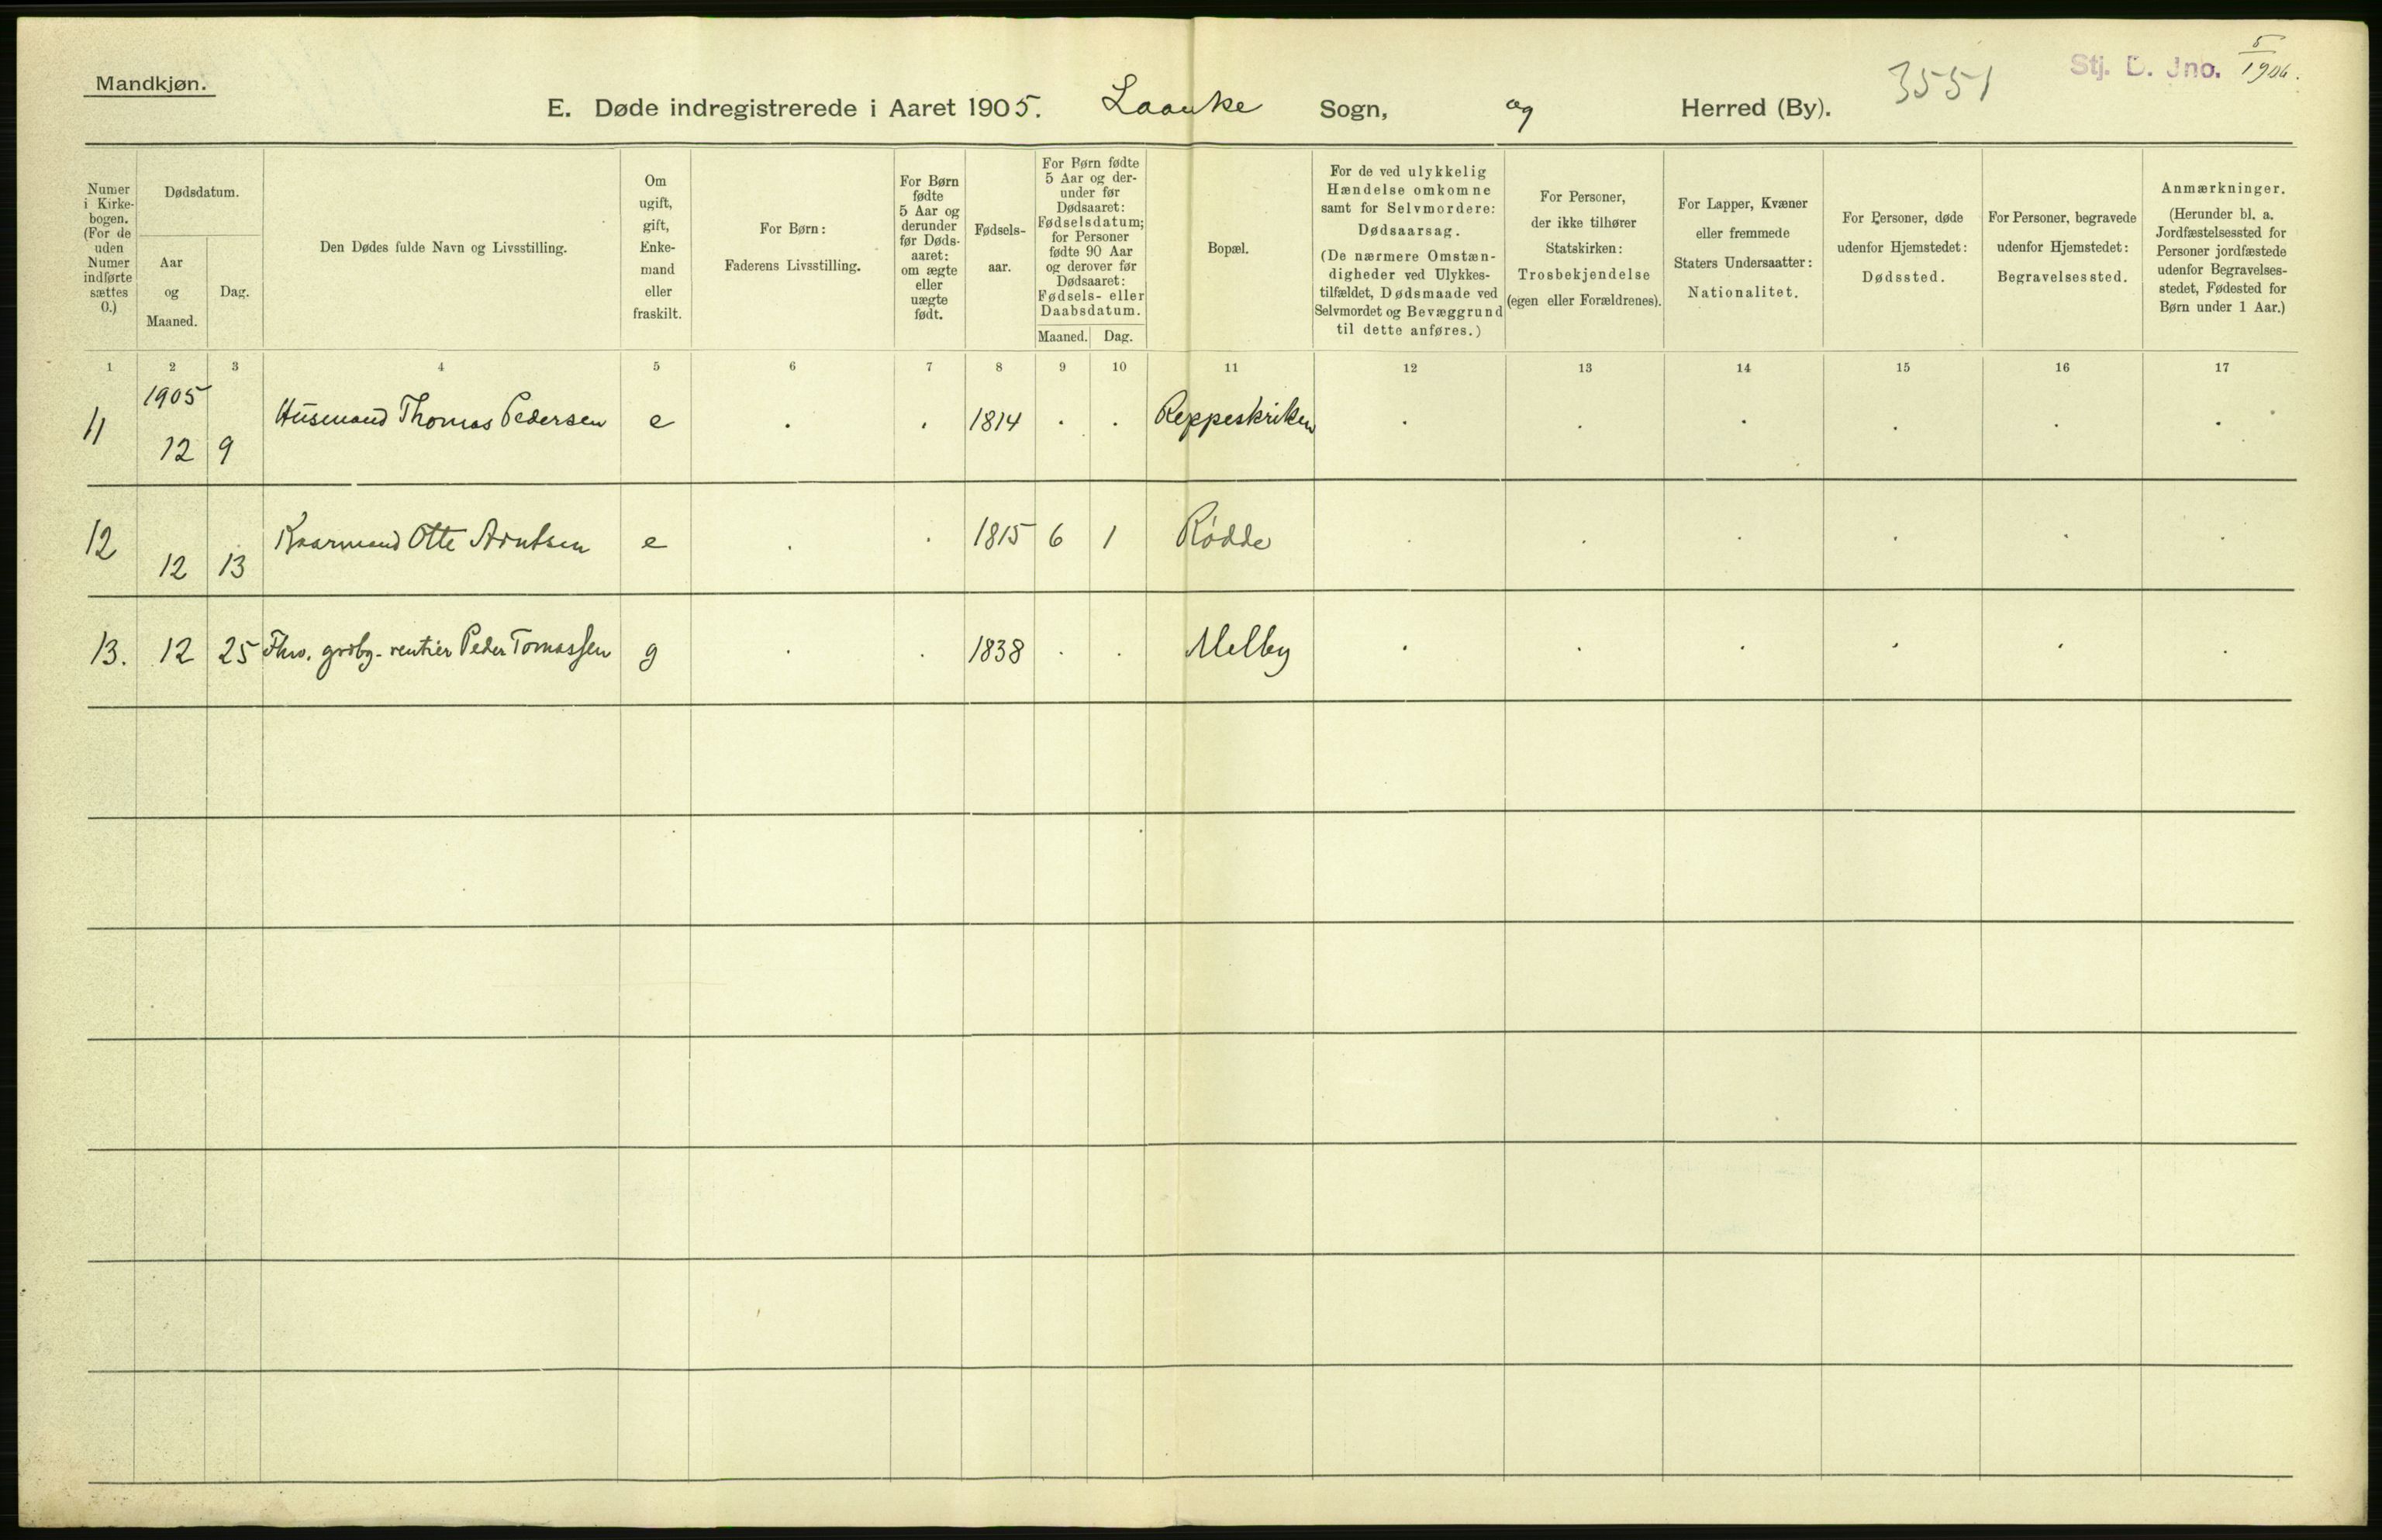 Mandkjøn.
E. Døde indregistrerede i Aaret 1905. Laanke Sogn, og Herred (By).
3551
Stj. D. Jno. 5/1906.
Numer i Kirkebogen. (For de uden Numer indførte sættes 0.)
Dødsdatum.
Aar og Maaned.
Dag.
Den Dødes fulde Navn og Livsstilling.
Om ugift, gift, Enkemand eller fraskilt.
For Børn: Faderens Livsstilling.
For Børn fødte 5 Aar og derunder før Dødsaaret: om ægte eller uægte født.
Fødselsaar.
For Børn fødte 5 Aar og derunder før Dødsaaret: Fødselsdatum; for Personer fødte 90 Aar og derover før Dødsaaret: Fødsels- eller Daabsdatum.
Maaned. Dag.
Bopæl.
For de ved ulykkelig Hændelse omkomne samt for Selvmordere: Dødsaarsag. (De nærmere Omstændigheder ved Ulykkestilfældet, Dødsmaade ved Selvmordet og Bevæggrund til dette anføres.)
For Personer, der ikke tilhører Statskirken: Trosbekjendelse (egen eller Forældrenes).
For Lapper, Kvæner eller fremmede Staters Undersaatter: Nationalitet.
For Personer, døde udenfor Hjemstedet: Dødssted.
For Personer, begravede udenfor Hjemstedet: Begravelsessted.
Anmærkninger. (Herunder bl. a. Jordfæstelsessted for Personer jordfæstede udenfor Begravelsesstedet, Fødested for Børn under 1 Aar.)
1 2 3 4 5 6 7 8 9 10 11 12 13 14 15 16 17
1905
11 12 9 Husmand Thomas Pedersen e . . 1814 . . Reppeskriken . . . . . .
12 12 13 Kaarmand Otte Arntsen e . . 1815 6 1 Rødde . . . . . .
13. 12 25 grdbr.- rentier Peder Tomassen g . . 1838 . . Melby . . . . . .